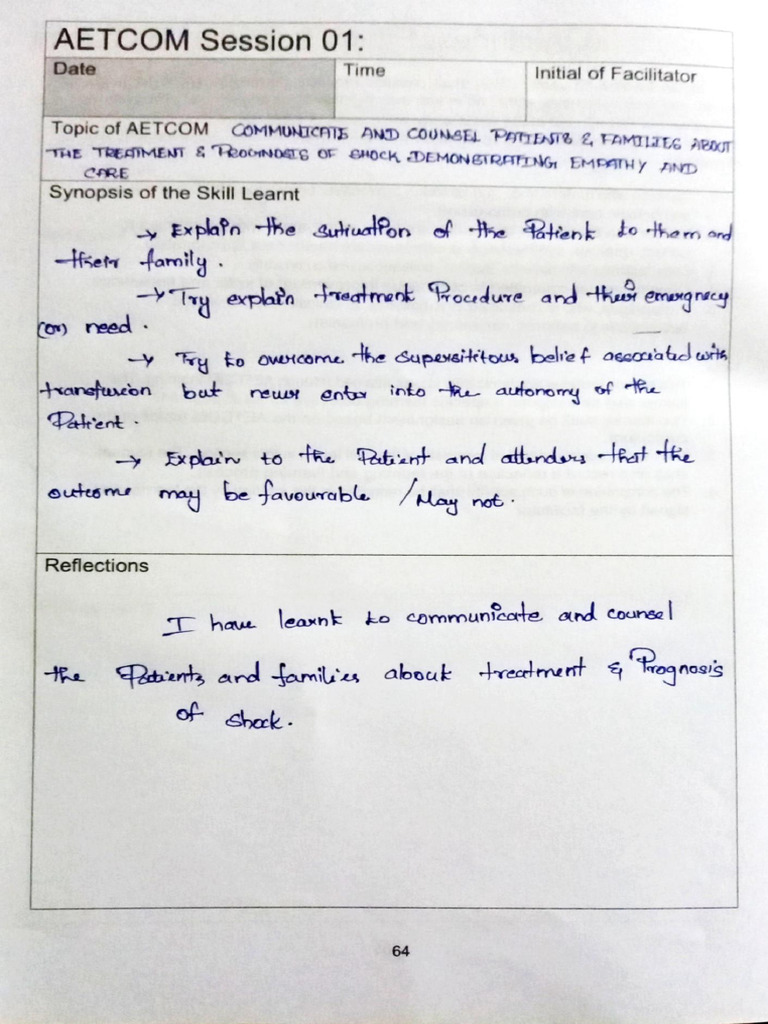 AETCOM Session 01:
Date Time Initial of Facilitator
Topic of AETCOM COMMUNICATE AND COUNSEL PATIENTS & FAMILIES ABOUT
THE TREATMENT & PROGNOSIS OF SHOCK DEMONSTRATING EMPATHY AND
CARE
Synopsis of the Skill Learnt
→ Explain the sutivation of the Patient to them and
their family.
→ Try explain treatment Procedure and their emergnecy
(or) need.
→ Try to overcome the supersititous belief associated with
transfusion but never enter into the autonomy of the
Patient.
→ Explain to the Patient and attenders that the
outcome may be favourable / May not.
Reflections
I have learnt to communicate and counsel
the Patients and families about treatment & Prognosis
of shock.
64